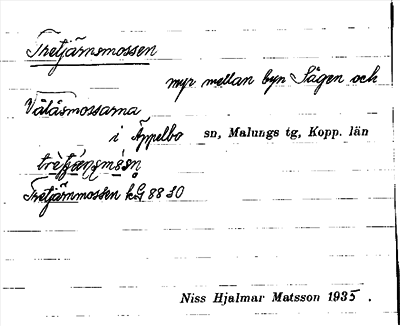 Tretjärnsmossen
myr mellan byn Sågen och
Vålåsmossarna
i Äppelbo sn, Malungs tg, Kopp. län
Tretjärnmossen kG 8830
Niss Hjalmar Matsson 1935.